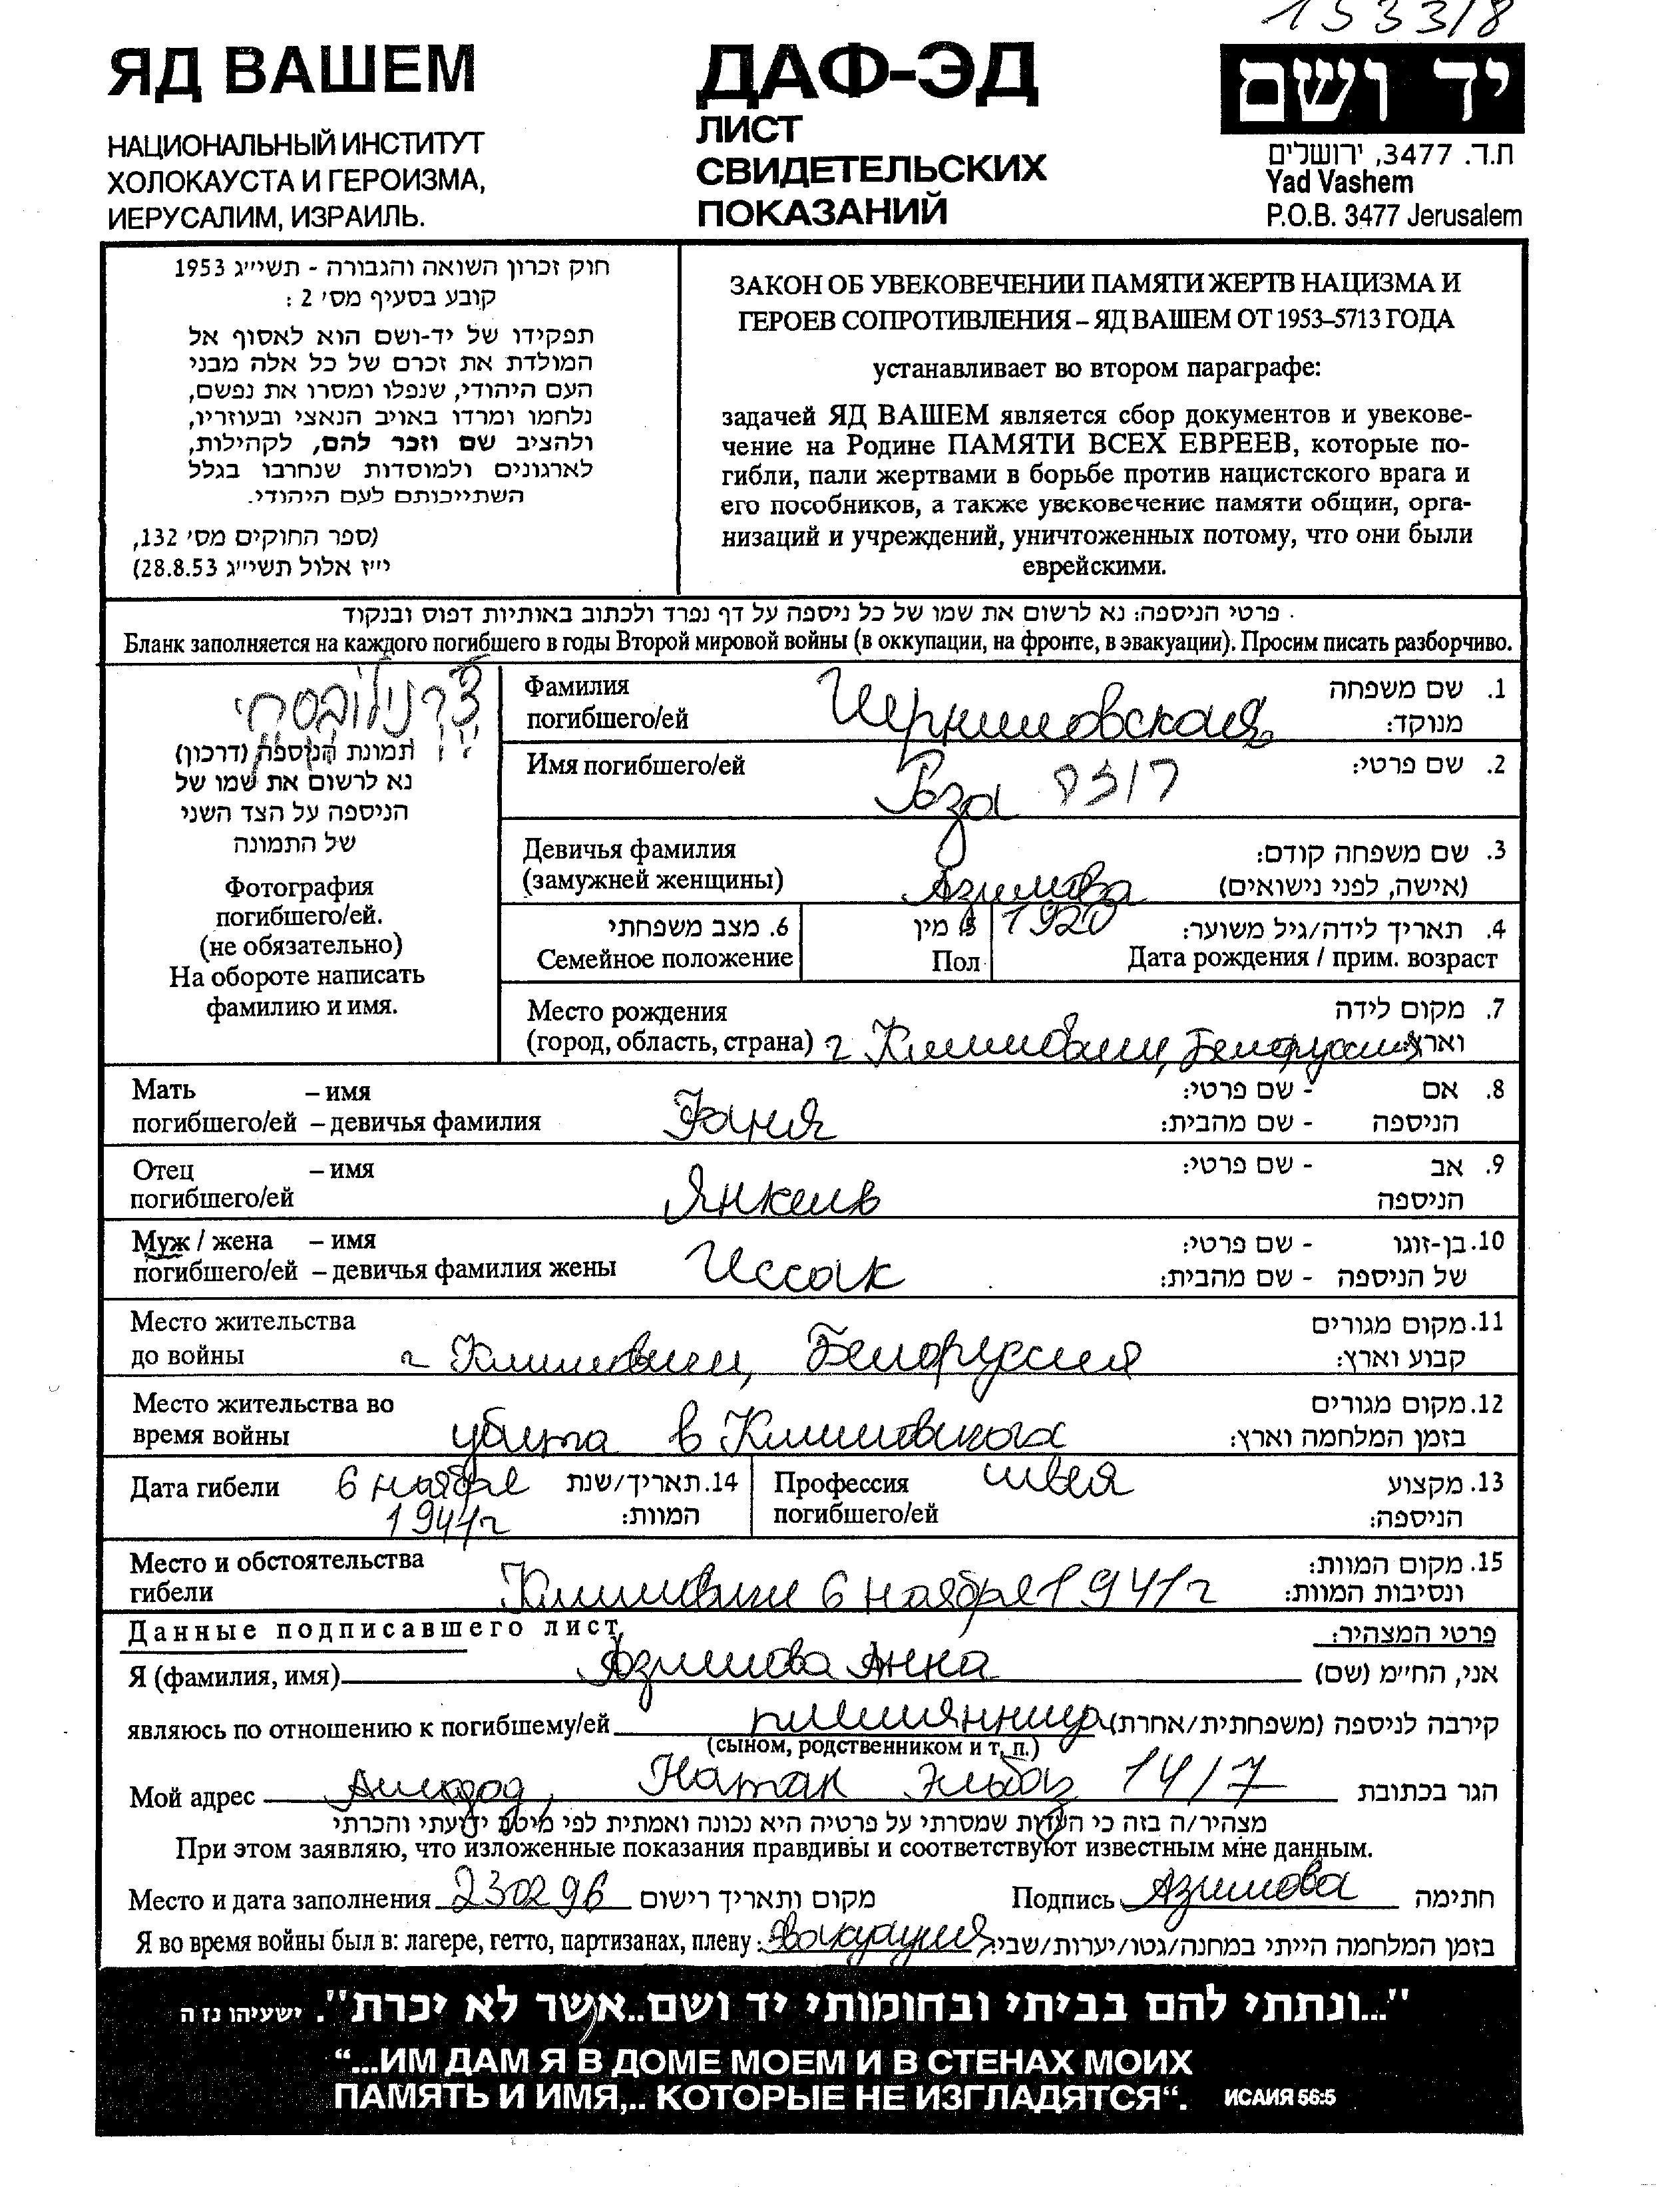 1533/8
ЯД ВАШЕМ
НАЦИОНАЛЬНЫЙ ИНСТИТУТ
ХОЛОКАУСТА И ГЕРОИЗМА,
ИЕРУСАЛИМ, ИЗРАИЛЬ.
ДАФ-ЭД
ЛИСТ
СВИДЕТЕЛЬСКИХ
ПОКАЗАНИЙ
יד ושם
ת.ד. 3477, ירושלים
Yad Vashem
P.O.B. 3477 Jerusalem
חוק זכרון השואה והגבורה - תשי״ג 1953
קובע בסעיף מס׳ 2 :
תפקידו של יד-ושם הוא לאסוף אל
המולדת את זכרם של כל אלה מבני
העם היהודי, שנפלו ומסרו את נפשם,
נלחמו ומרדו באויב הנאצי ובעוזריו,
ולהציב שם וזכר להם, לקהילות,
לארגונים ולמוסדות שנחרבו בגלל
השתייכותם לעם היהודי.
(ספר החוקים מס׳ 132,
י״ז אלול תשי״ג 28.8.53)
ЗАКОН ОБ УВЕКОВЕЧЕНИИ ПАМЯТИ ЖЕРТВ НАЦИЗМА И
ГЕРОЕВ СОПРОТИВЛЕНИЯ – ЯД ВАШЕМ ОТ 1953–5713 ГОДА
устанавливает во втором параграфе:
задачей ЯД ВАШЕМ является сбор документов и увекове-
чение на Родине ПАМЯТИ ВСЕХ ЕВРЕЕВ, которые по-
гибли, пали жертвами в борьбе против нацистского врага и
его пособников, а также увековечение памяти общин, орга-
низаций и учреждений, уничтоженных потому, что они были
еврейскими.
פרטי הניספה: נא לרשום את שמו של כל ניספה על דף נפרד ולכתוב באותיות דפוס ובנקוד
Бланк заполняется на каждого погибшего в годы Второй мировой войны (в оккупации, на фронте, в эвакуации). Просим писать разборчиво.
תמונת הניספה (דרכון)
נא לרשום את שמו של
הניספה על הצד השני
של התמונה
Фотография
погибшего/ей.
(не обязательно)
На обороте написать
фамилию и имя.
Фамилия שם משפחה .1
погибшего/ей מנוקד:
Имя погибшего/ей Роза רוזה שם פרטי: .2
Девичья фамилия שם משפחה קודם: .3
(замужней женщины) Азимова (אישה, לפני נישואים)
6. מצב משפחתי מין 1920 תאריך לידה/גיל משוער: .4
Семейное положение Пол Дата рождения / прим. возраст
Место рождения מקום לידה .7
(город, область, страна) г Климовичи, Белоруссия וארץ
Мать – имя אם - שם פרטי: .8
погибшего/ей – девичья фамилия Фаня הניספה - שם מהבית:
Отец – имя אב - שם פרטי: .9
погибшего/ей Янкель הניספה
Муж / жена – имя 10. בן-זוגו - שם פרטי:
погибшего/ей – девичья фамилия жены Иссак של הניספה - שם מהבית:
Место жительства 11. מקום מגורים
до войны г Климовичи, Белоруссия קבוע וארץ:
Место жительства во 12. מקום מגורים
время войны убита в Климовичах בזמן המלחמה וארץ:
Дата гибели 6 ноября 14. תאריך/שנת Профессия швея 13. מקצוע
1941г המוות: погибшего/ей הניספה:
Место и обстоятельства 15. מקום המוות:
гибели Климовичи 6 ноября 1941г ונסיבות המוות:
Данные подписавшего лист פרטי המצהיר:
Я (фамилия, имя) Азимова Анна אני, הח״מ (שם)
являюсь по отношению к погибшему/ей племянница קירבה לניספה (משפחתית/אחרת)
(сыном, родственником и т. п.)
Мой адрес Ашдод, Натан Эльбаз 14/7 הגר בכתובת
מצהיר/ה בזה כי העדות שמסרתי על פרטיה היא נכונה ואמתית לפי מיטב ידיעתי והכרתי
При этом заявляю, что изложенные показания правдивы и соответствуют известным мне данным.
Место и дата заполнения 230296 מקום ותאריך רישום Подпись Азимова חתימה
Я во время войны был в: лагере, гетто, партизанах, плену: эвакуация בזמן המלחמה הייתי במחנה/גטו/יערות/שבי:
"...ונתתי להם בביתי ובחומותי יד ושם..אשר לא יכרת". ישעיהו נז ה
“...ИМ ДАМ Я В ДОМЕ МОЕМ И В СТЕНАХ МОИХ
ПАМЯТЬ И ИМЯ,.. КОТОРЫЕ НЕ ИЗГЛАДЯТСЯ“. ИСАИЯ 56:5